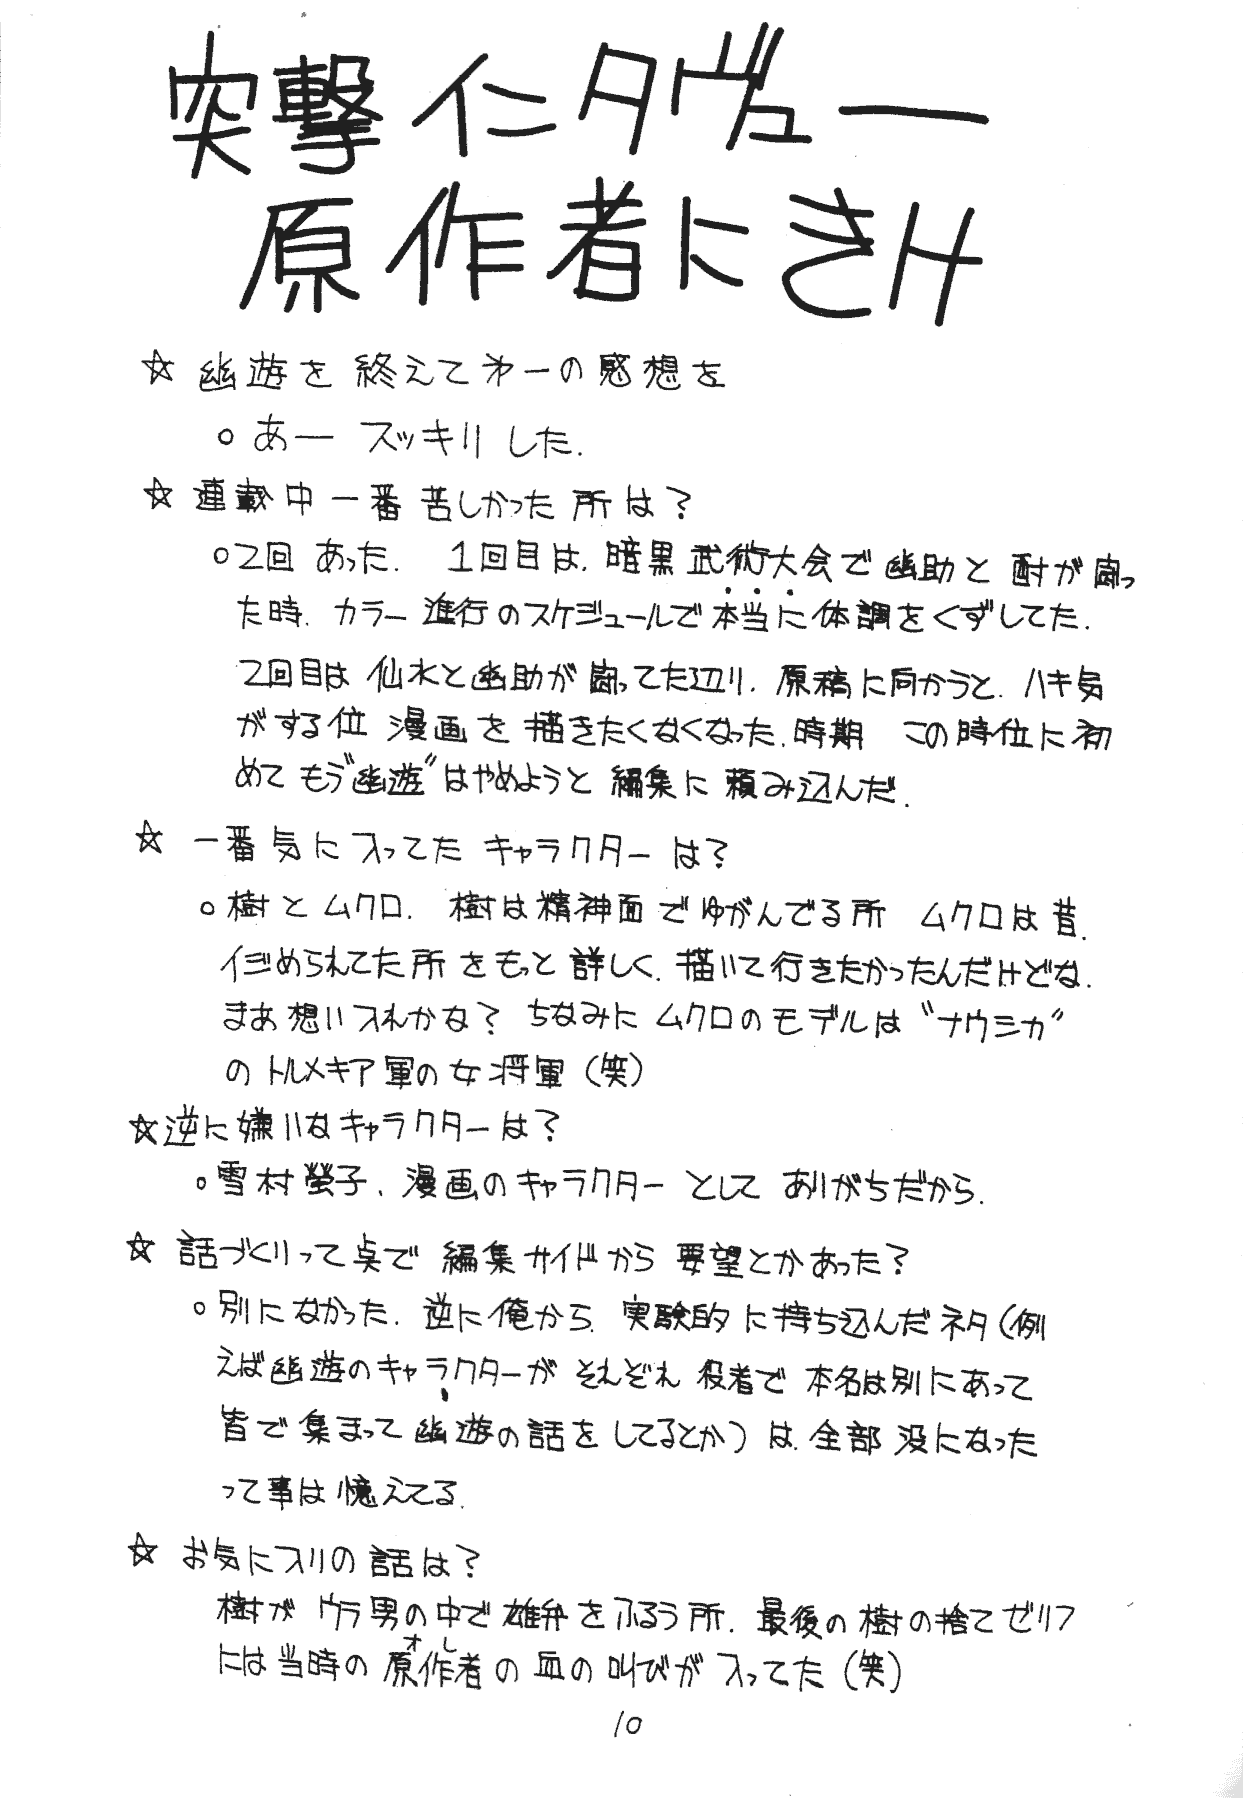 突撃インタヴュー
原作者にきけ
☆ 幽遊を終えて第一の感想を
○ あー スッキリした.
☆ 連載中一番苦しかった所は？
○2回あった. 1回目は, 暗黒武術大会で幽助と酎が闘っ
た時. カラー進行のスケジュールで本当に体調をくずしてた.
2回目は仙水と幽助が闘ってた辺り. 原稿に向かうと, ハキ気
がする位 漫画を描きたくなくなった, 時期 この時位に初
めてもう“幽遊”はやめようと編集に頼み込んだ.
☆ 一番気に入ってたキャラクターは？
○樹とムクロ. 樹は精神面でゆがんでる所 ムクロは昔,
イジめられてた所をもっと詳しく, 描いて行きたかったんだけどな.
まあ想い入れかな？ ちなみにムクロのモデルは“ナウシカ”
のトルメキア軍の女将軍（笑）
☆逆に嫌いなキャラクターは？
○雪村螢子、漫画のキャラクターとしてありがちだから.
☆ 話づくりって点で編集サイドから要望とかあった？
○別になかった. 逆に俺から, 実験的に持ち込んだネタ（例
えば幽遊のキャラクターがそれぞれ役者で本名は別にあって
皆で集まって幽遊の話をしてるとか）は, 全部没になった
って事は憶えてる.
☆ お気に入りの話は？
樹がウラ男の中で雄弁をふるう所. 最後の樹の捨てゼリフ
オレ
には当時の原作者の血の叫びが入ってた（笑）
10